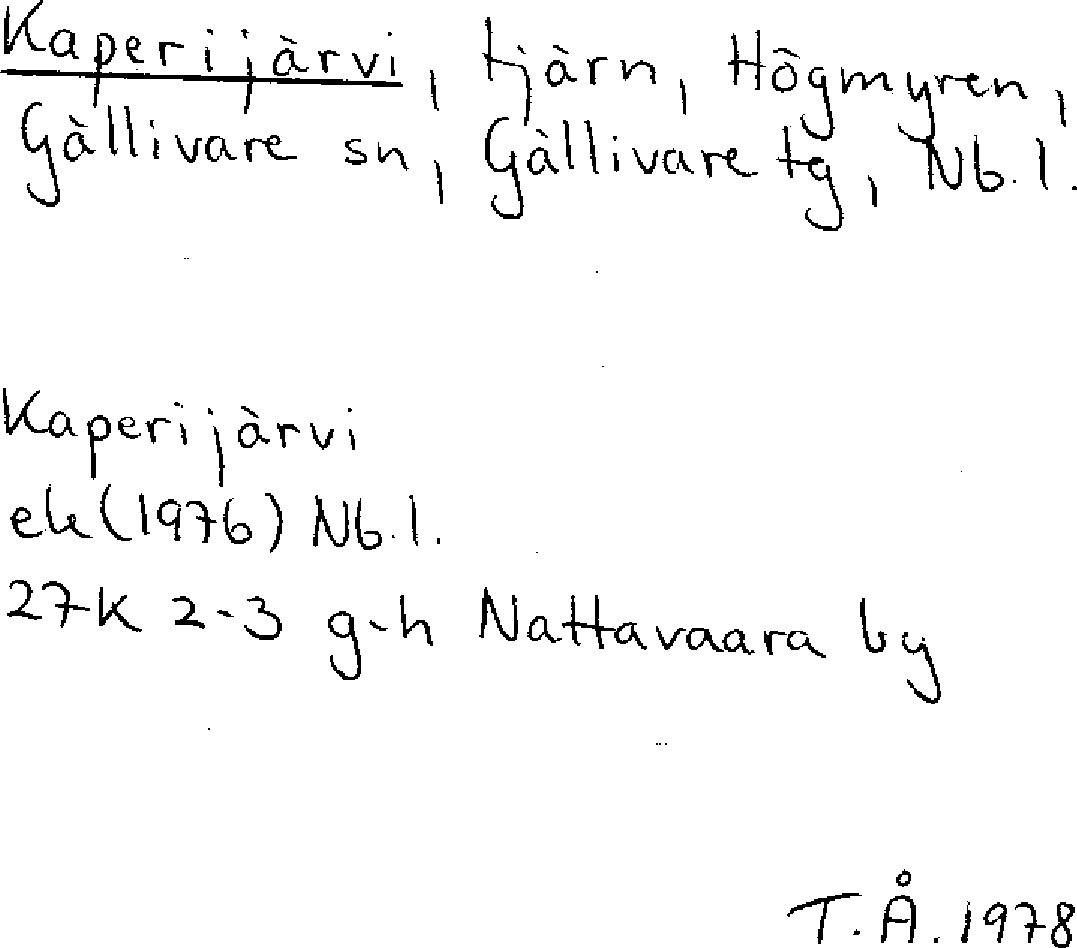 Kaperijärvi, tjärn, Högmyren,
Gällivare sn, Gällivare tg, Nb.l.
Kaperijärvi
ek (1976) Nb.l.
27K 2-3 g-h Nattavaara by
T.Å. 1978